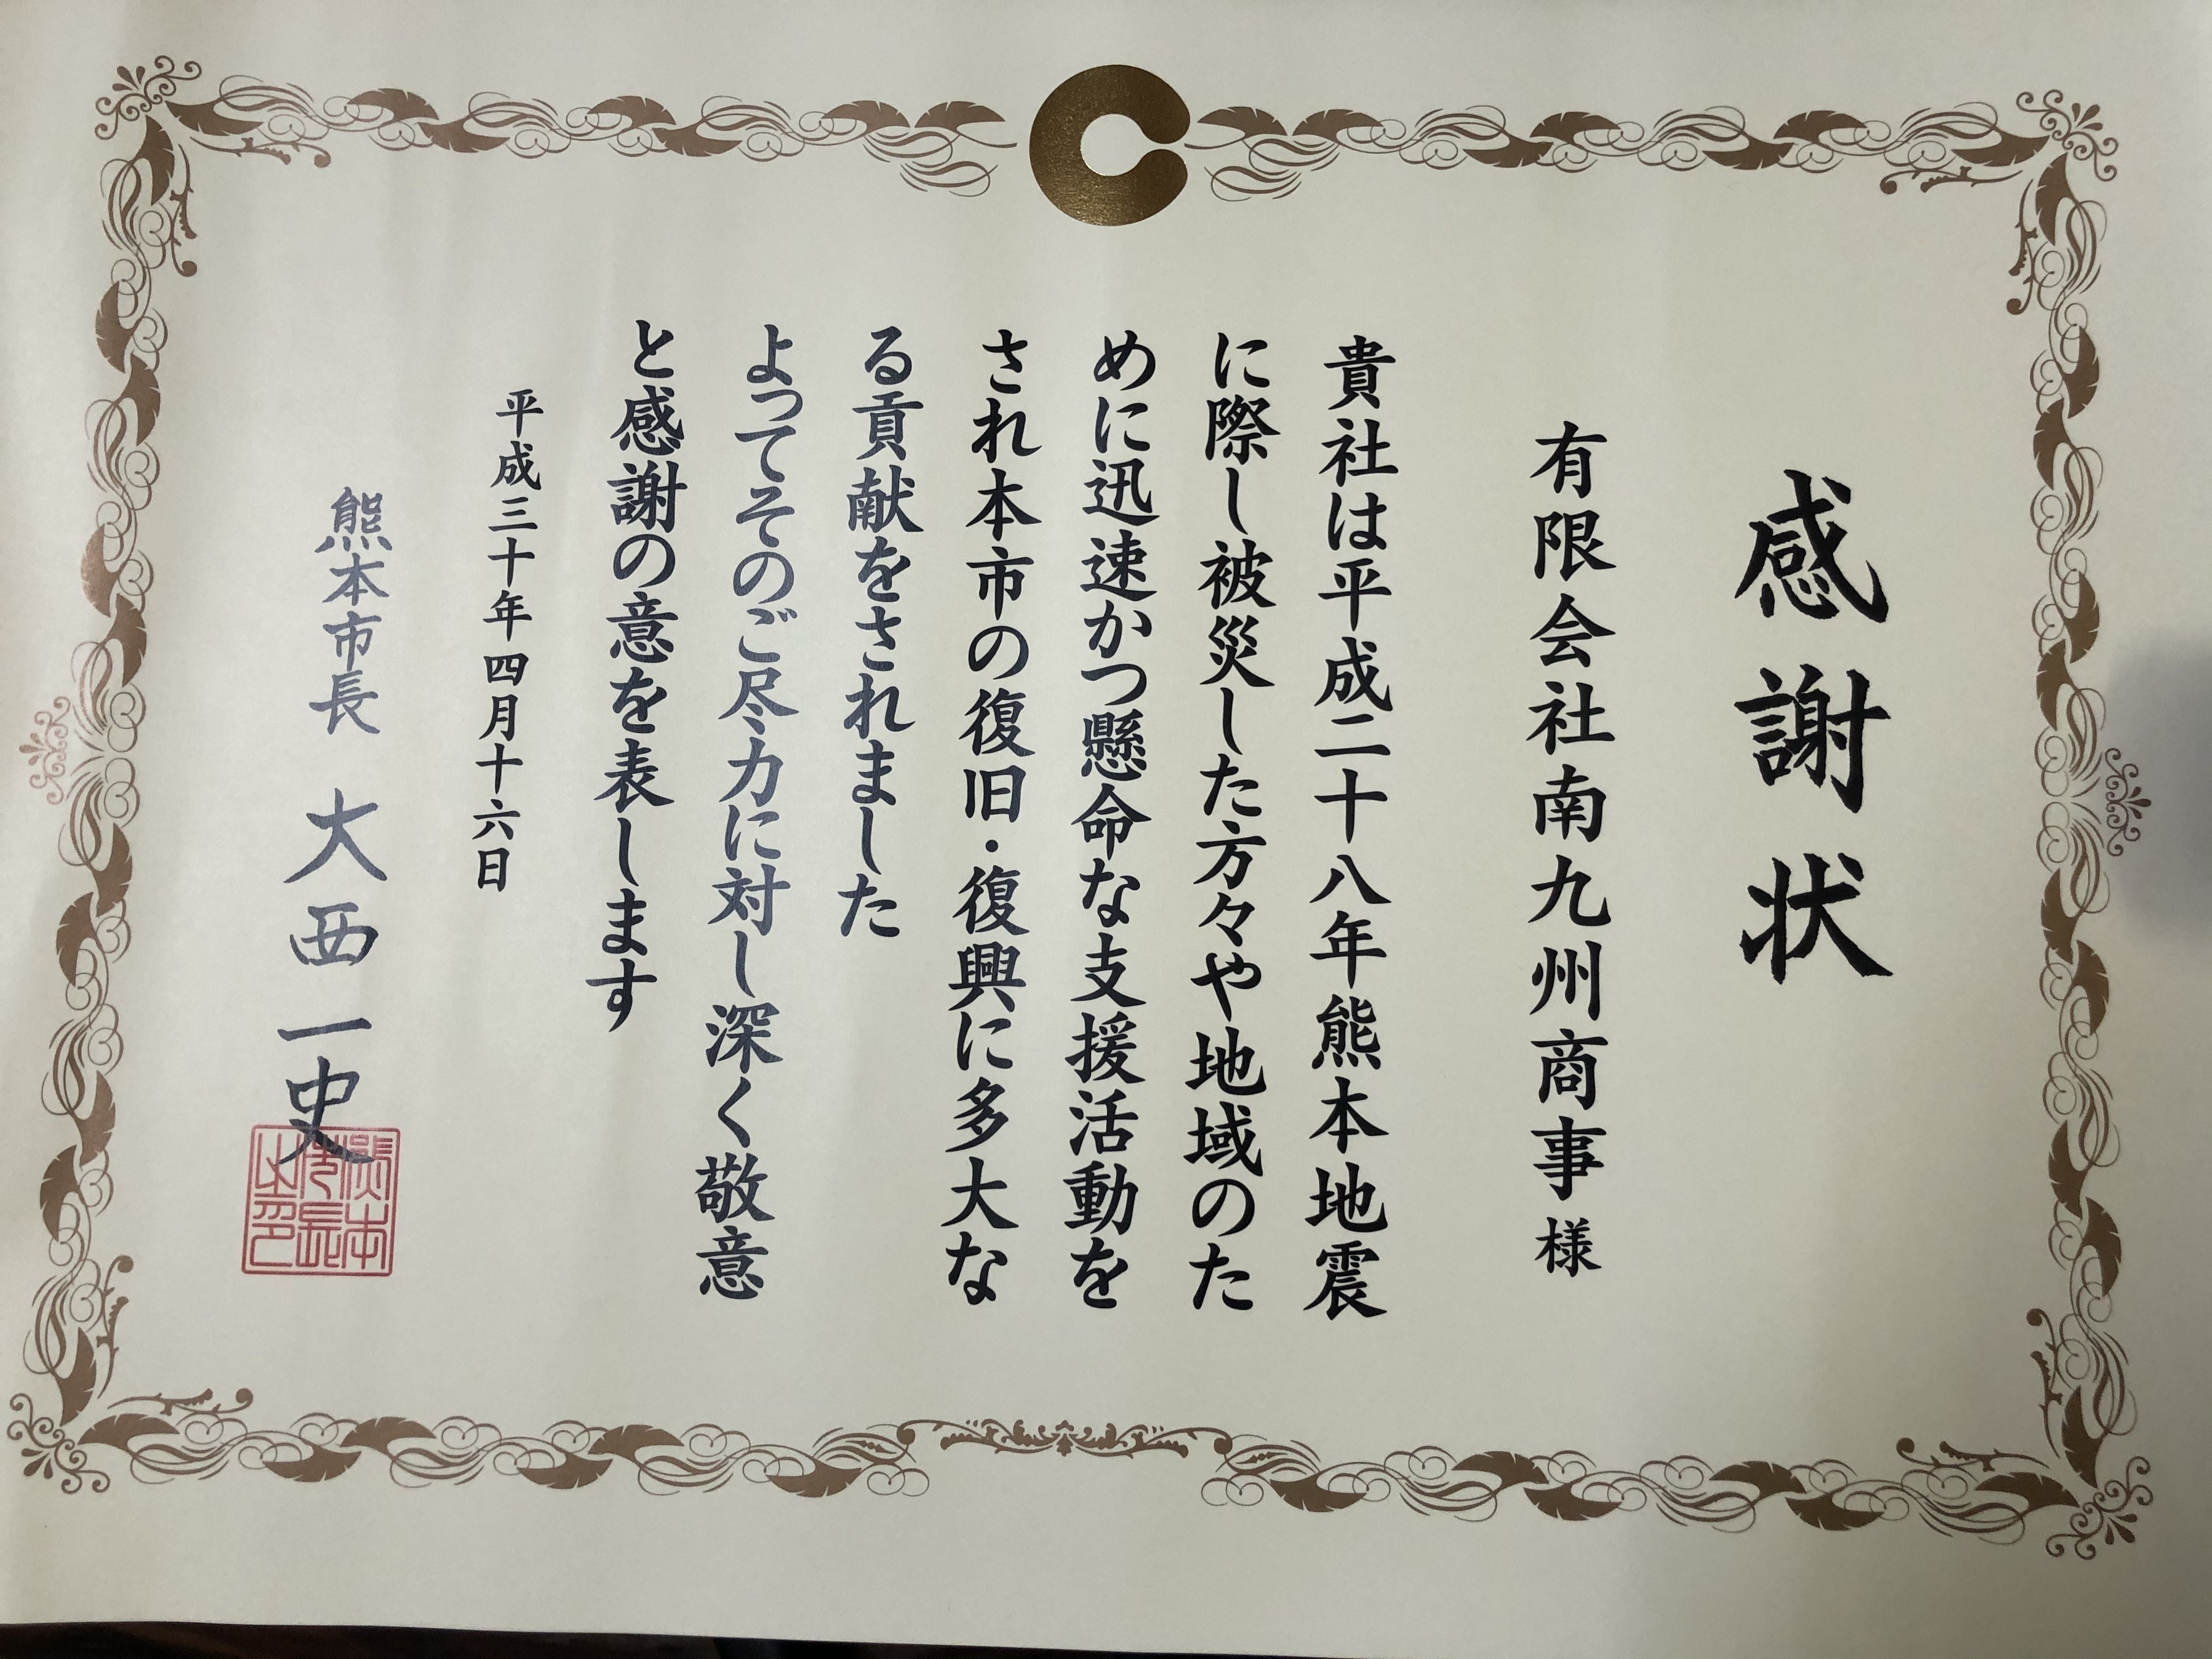 感謝状
有限会社南九州商事様
貴社は平成二十八年熊本地震
に際し被災した方々や地域のた
めに迅速かつ懸命な支援活動を
され本市の復旧・復興に多大な
る貢献をされました
よってそのご尽力に対し深く敬意
と感謝の意を表します
平成三十年四月十六日
熊本市長 大西一史
熊本市長之印